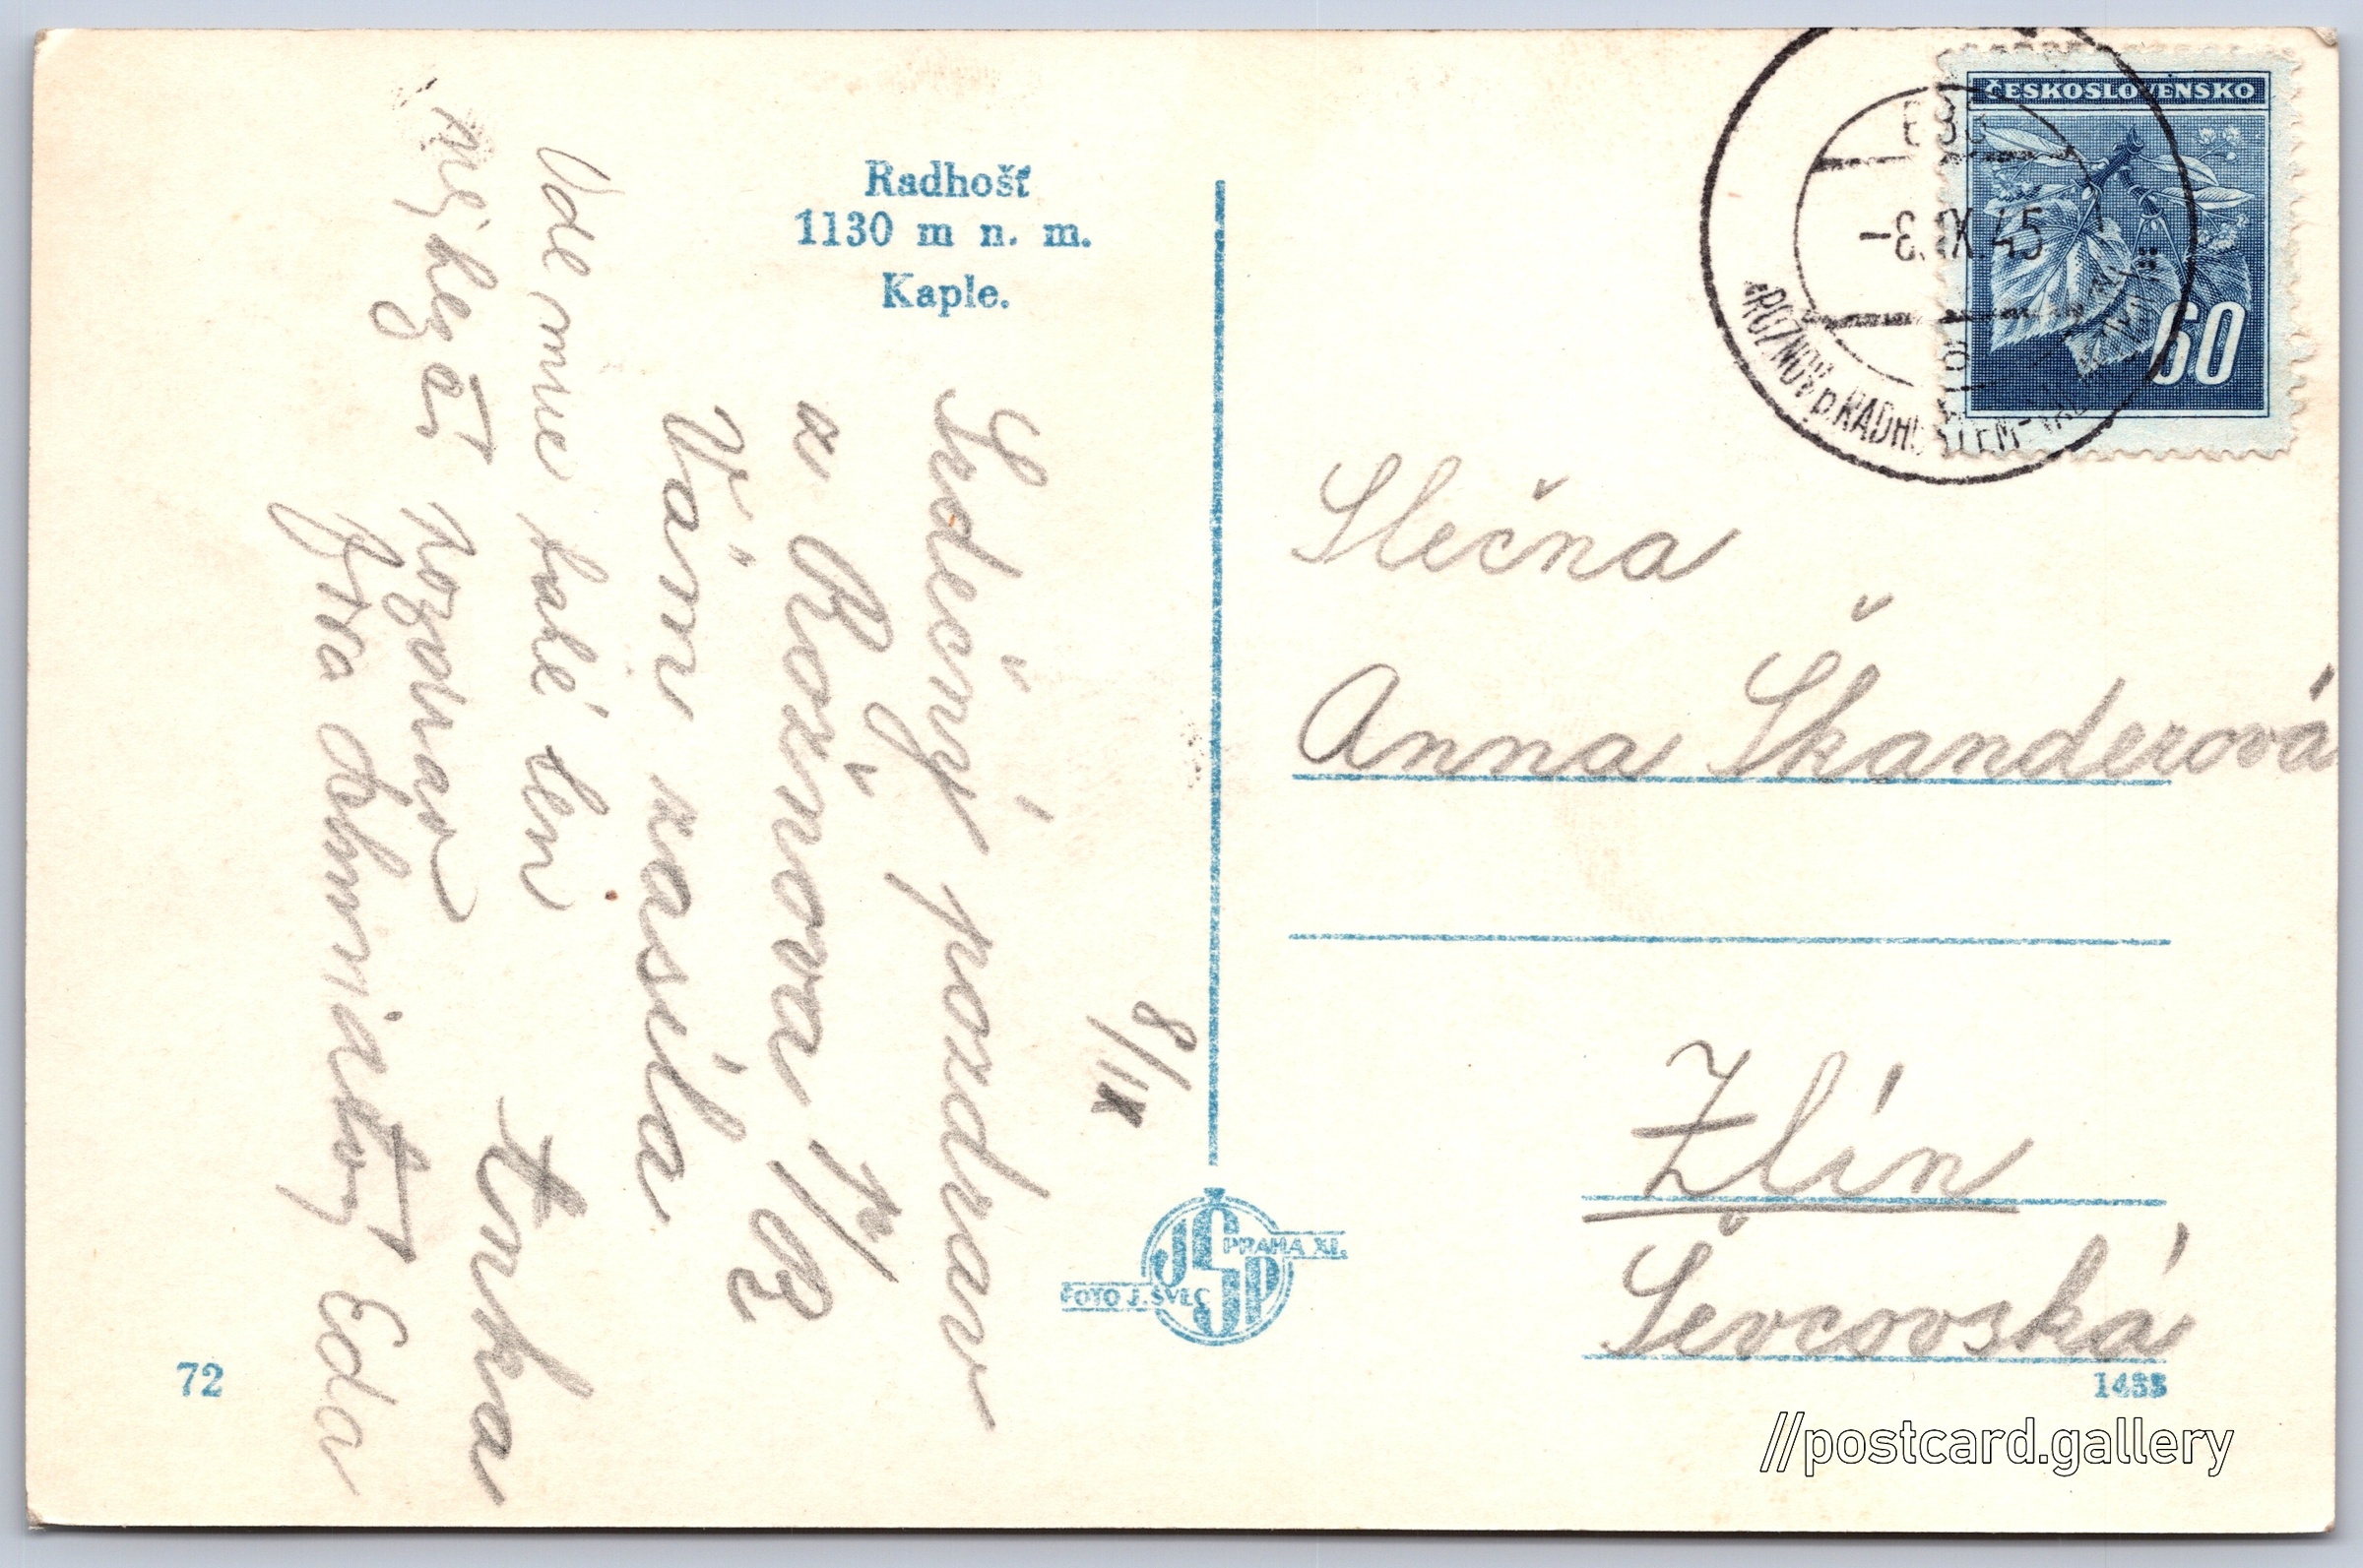 Radhošť
1130 m n. m.
Kaple.
8/IX
Srdečný pozdrav
z Rožnova p/R
Vám zasílá
Jirka
Ode mne také ten
nejhezčí pozdrav
Eda
72
FOTO J. ŠVEC
PRAHA XI.
JŠP
ČESKOSLOVENSKO
60
-8.IX.45
ROŽNOV p. RADHOŠTĚM
Slečna
Anna Škanderová
Zlín
Ševcovská
1433
//postcard.gallery